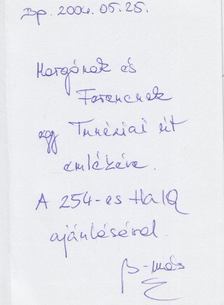 Bp. 2004. 05. 25.
Margónak és
Ferencnek
egy Tunéziai út
emlékére.
A 254-es HalQ
ajánlásával